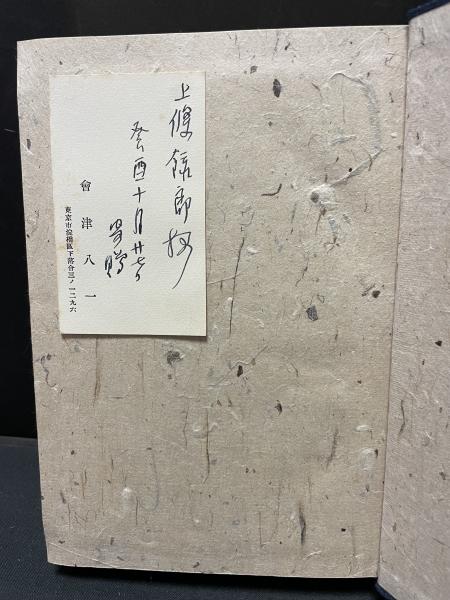 上條信郎様
癸酉十月廿七日
寄贈
會津八一
東京市淀橋區下落合三ノ一二九六